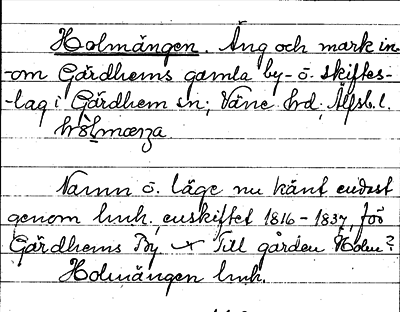 Holmängen. Äng och mark in-
-om Gärdhems gamla by- o. skiftes-
-lag i Gärdhem sn; Väne hd; Älfsb. l.
Namn o. läge nu känt endast
genom lmh. enskiftet 1816-1837, för
Gärdhems By × Till gården Holm?
Holmängen lmh.